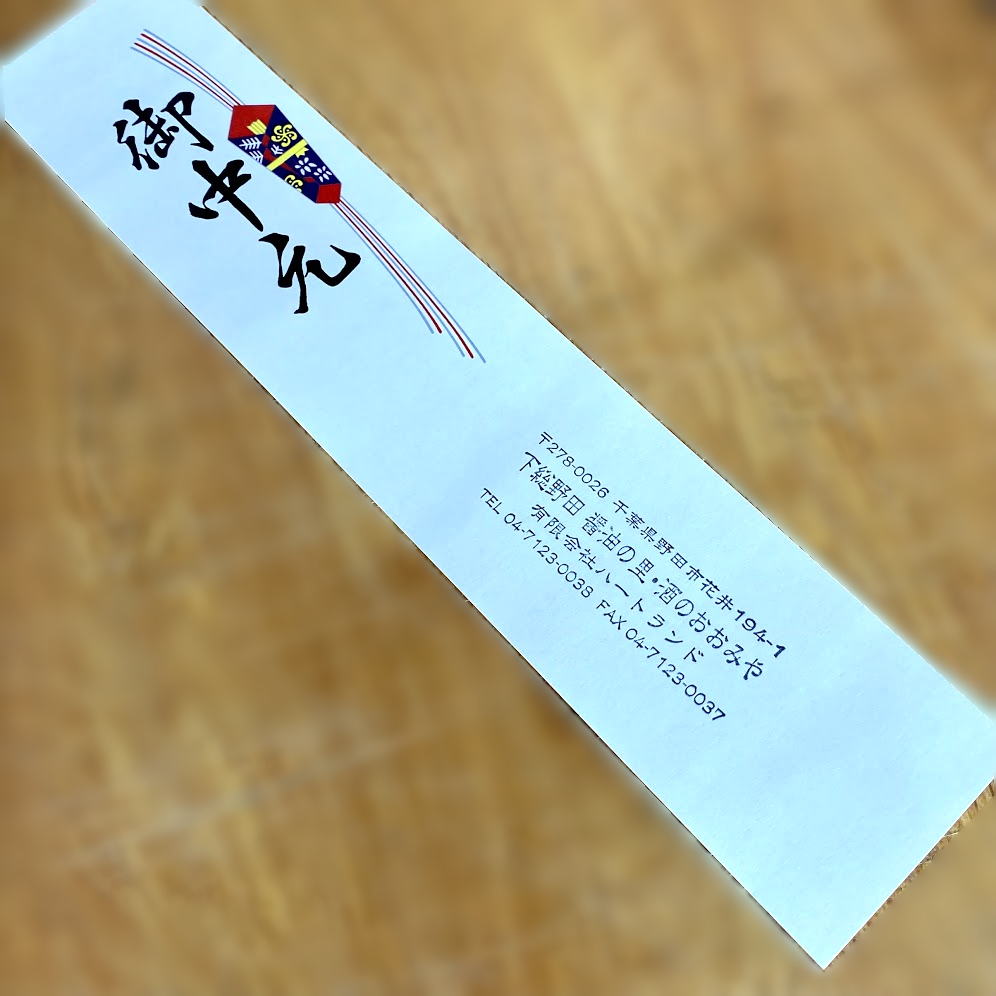 御中元
〒278-0026 千葉県野田市花井194-1
下総野田 醤油の里・酒のおおみや
有限会社ハートランド
TEL 04-7123-0038 FAX 04-7123-0037